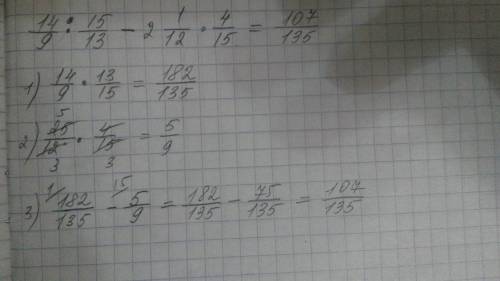 14/9 : 15/13 - 2 1/12 · 4/15 = 107/135
1) 14/9 · 13/15 = 182/135
2) 25/12 · 4/15 = 5/9
5 3 3
3) 182/135 - 5/9 = 182/135 - 75/135 = 107/135
1/ 15/